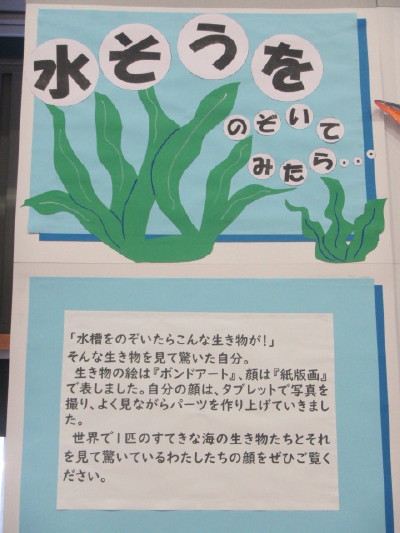 水そうを
のぞいて
みたら・・・
「水槽をのぞいたらこんな生き物が！」
そんな生き物を見て驚いた自分。
生き物の絵は『ボンドアート』、顔は『紙版画』
で表しました。自分の顔は、タブレットで写真を
撮り、よく見ながらパーツを作り上げていきまし
た。
世界で1匹のすてきな海の生き物たちとそれ
を見て驚いているわたしたちの顔をぜひご覧く
ださい。